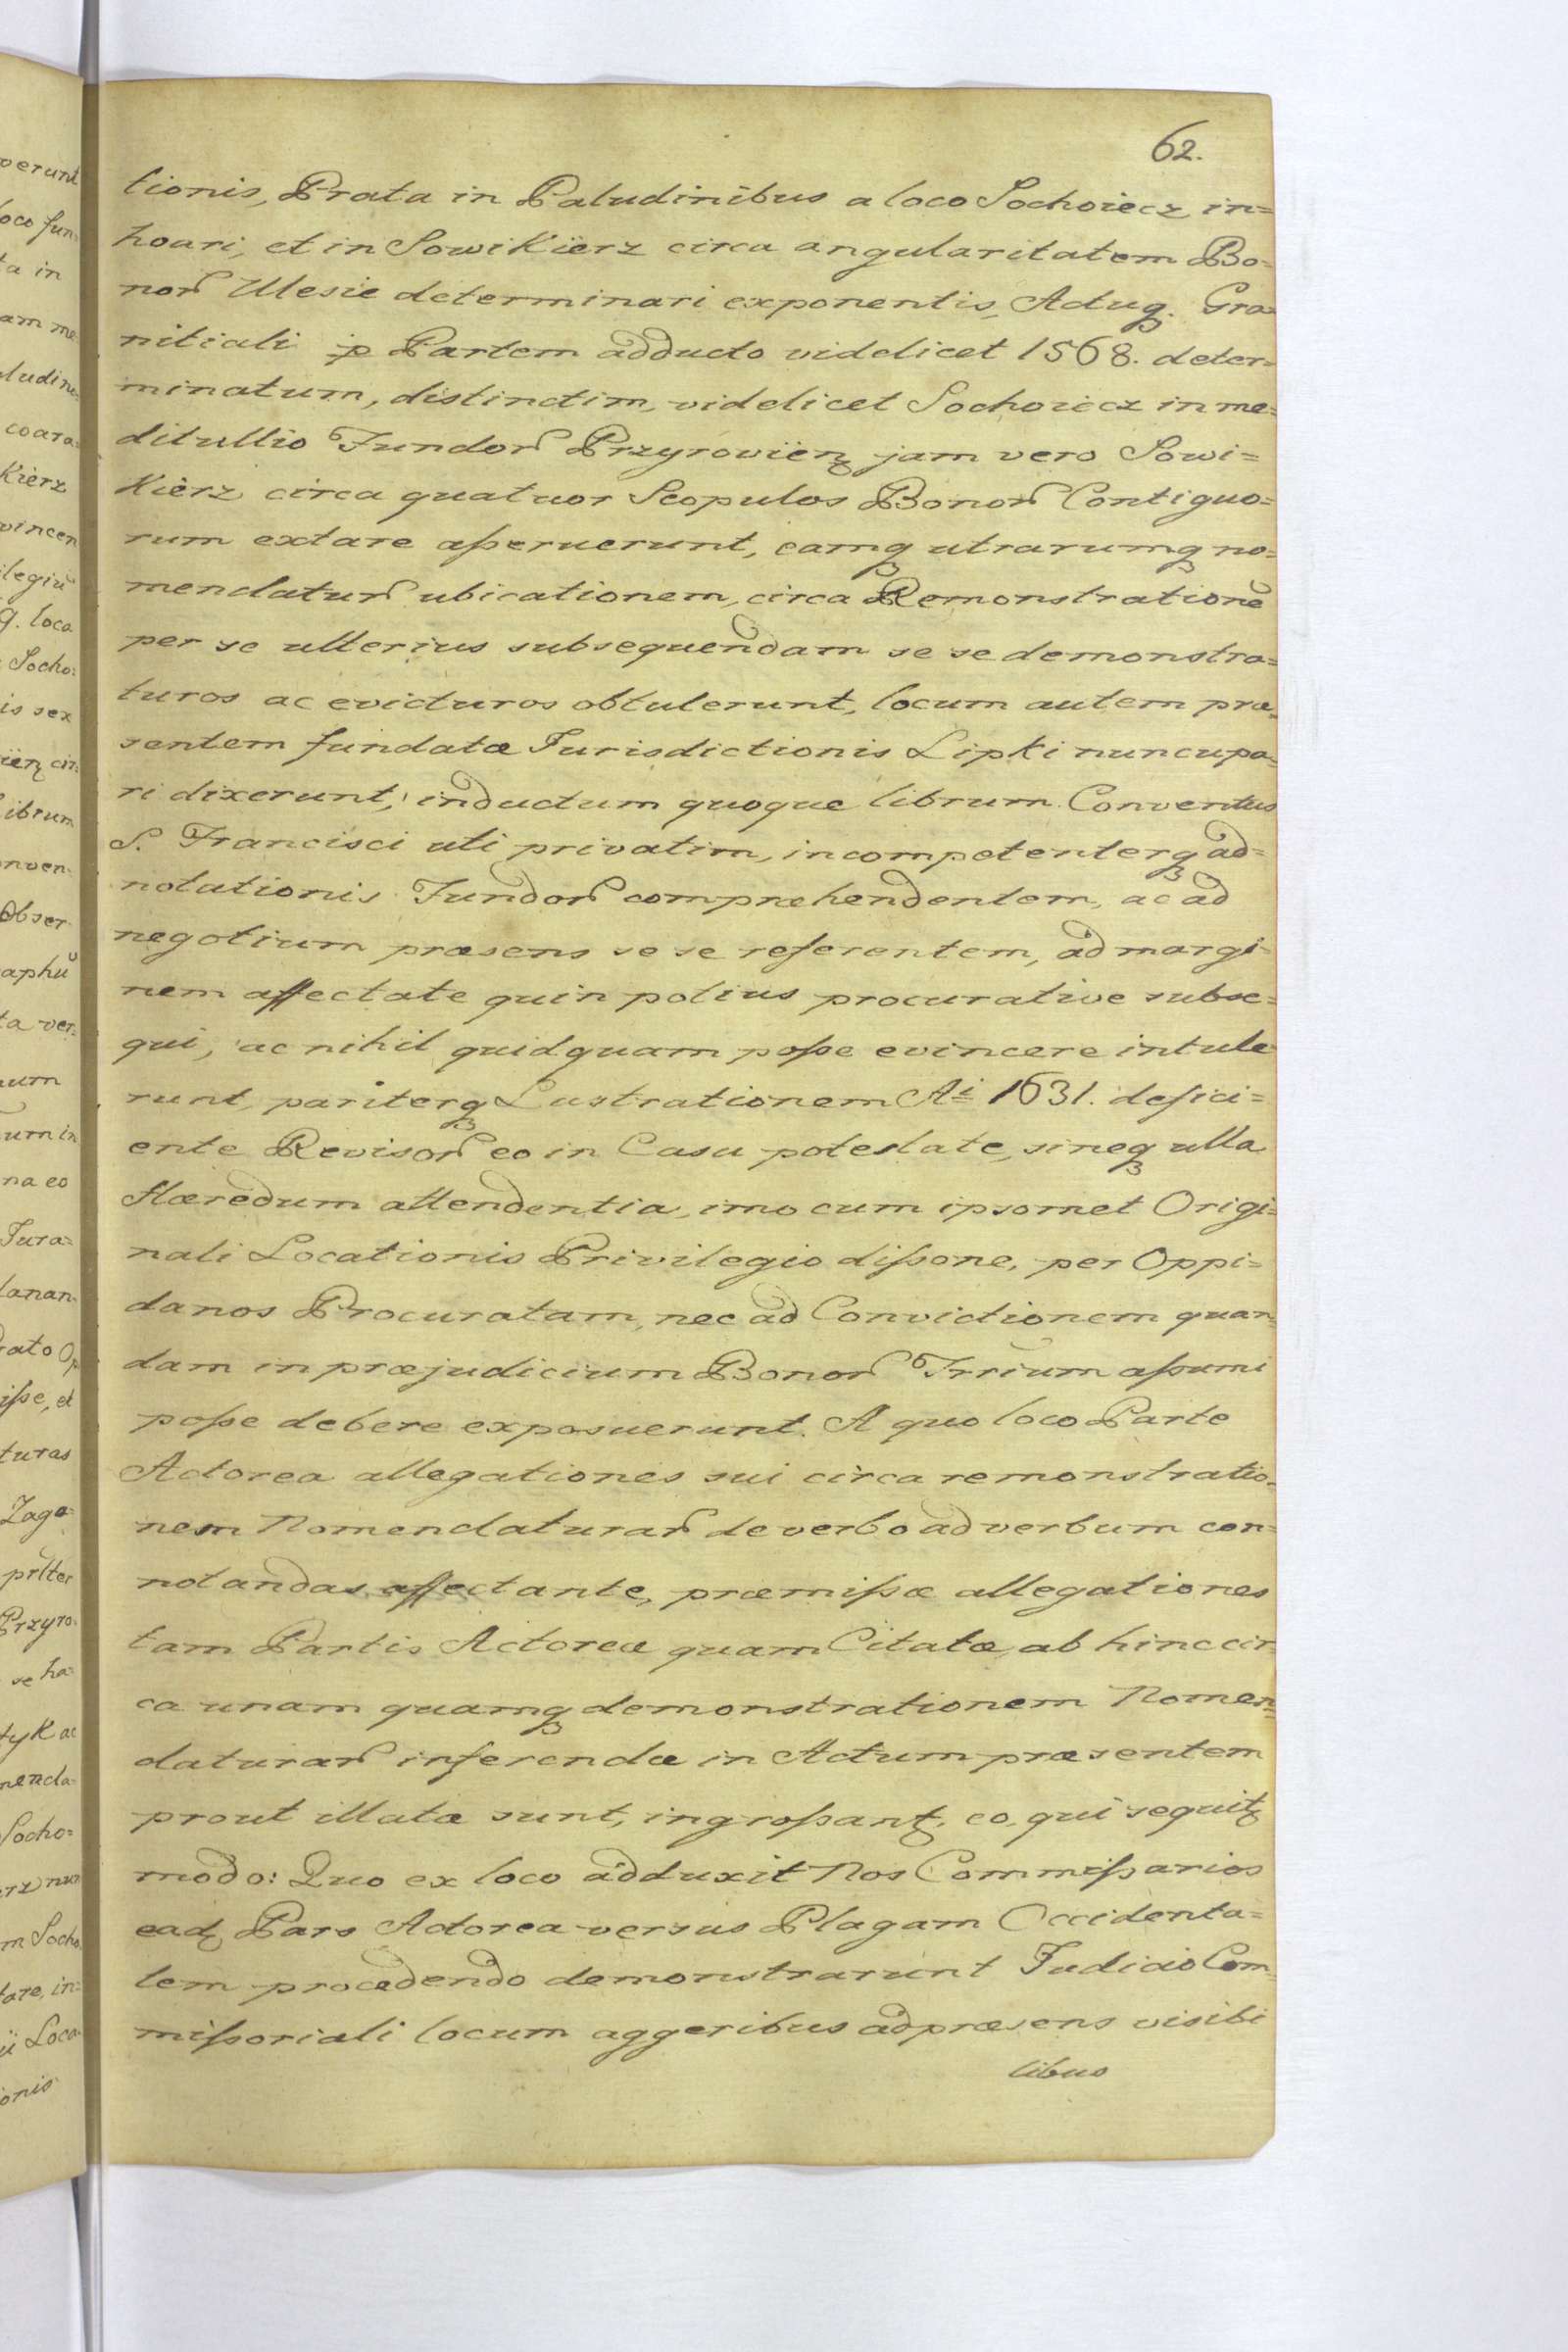 62.
tionis, Prata in Paludinibus a loco Sochoiecz in=
hoari, et in Sowi Kierz circa angularitatem Bo=
nor Ulesie determinari exponentis, Actuq. Gra=
nitiali p Partem adducto videlicet 1568. deter=
minatum, distinctim, videlicet Sochoiecz in me=
ditullio Fundor Przyrovien, jam vero Sowi=
Kierz circa quatuor Scopulos Bonor Contiguo=
rum extare aſseruerunt, eamq utrarumq no=
menclatur ubicationem, circa Remonstratione
per se ulterius subsequendam se se demonstra=
turos ac evicturos obtulerunt, locum autem præ=
sentem fundatæ Jurisdictionis Lipki nuncupa=
ri dixerunt, inductum quoque librum Conventus
S. Francisci uti privatim, incompetenterq ad=
notationis Fundor comprehendentem, ac ad
negotium præsens se se referentem, ad margi=
nem affectate quin potius procurative subse=
qui, ac nihil quidquam poſse evincere intule
runt, pariterq Lustrationem Ai 1631. defici=
ente Revisor eo in Casu potestate, sineq ulla
Hæredum attendentia, imo cum ipsomet Origi=
nali Locationis Privilegio diſsone, per Oppi=
danos Procuratam, nec ad Convictionem quan=
dam in præjudicium Bonor Trrium aſsumi
poſse debere exposuerunt. A quo loco Parte
Actorea allegationes sui circa remonstratio=
nem Nomenclaturar de verbo ad verbum con=
notandas affectante, præmiſsæ allegationes
tam Partis Actoreæ quam Citatæ, ab hinc cir=
ca unam quamq demonstrationem Nomen=
claturar inferendæ in Actum præsentem
prout illatæ sunt, ingroſsant, eo, qui sequit
modo: Quo ex loco adduxit Nos Commiſsarios
ead Pars Actorea versus Plagam Occidenta=
lem procedendo demonstrarunt Judicio Com=
miſsoriali locum aggeribus ad præsens visibi
libus